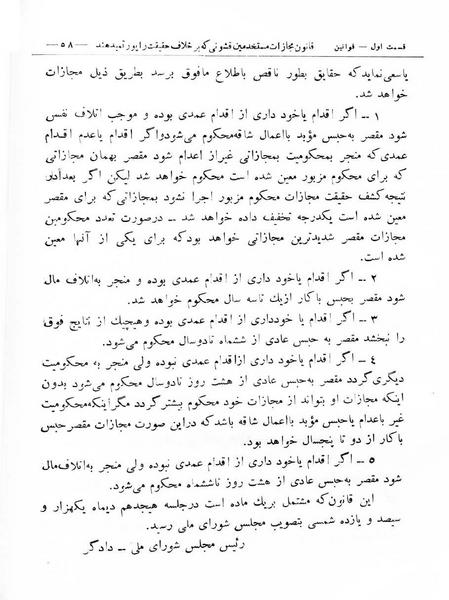 قسمت اول – قوانین قانون مجازات مستخدمین قشونی که بر خلاف حقیقت راپورت میدهند – ۵۸ –
یاسعی نماید که حقایق بطور ناقص باطلاع مافوق برسد بطریق ذیل مجازات
خواهد شد.
۱ ــ اگر اقدام یاخود داری از اقدام عمدی بوده و موجب اتلاف نفس
شود مقصر به‌حبس مؤبد بااعمال شاقه محکوم می‌شود و اگر اقدام یاعدم اقدام
عمدی‌که منجر بمحکومیت بمجازاتی غیر از اعدام شود مقصر بهمان مجازاتی
که برای محکوم مزبور معین شده است محکوم خواهد شد لیکن اگر بعداً در
نتیجه کشف حقیقت مجازات محکوم مزبور اجرا نشود بمجازاتی‌که برای مقصر
معین شده است یکدرجه تخفیف داده خواهد شد ــ درصورت تعدد محکومین
مجازات مقصر شدیدترین مجازاتی خواهد بود که برای یکی از آنها معین
شده است.
۲ ــ اگر اقدام یاخود داری از اقدام عمدی بوده و منجر به‌اتلاف مال
شود مقصر بحبس با کار ازیك تاسه سال محکوم خواهد شد.
۳ ــ اگر اقدام یا خودداری از اقدام عمدی بوده وهیچیك از نتایج فوق
را نبخشد مقصر به حبس عادی از ششماه تادوسال محکوم می‌شود.
۴ ــ اگر اقدام یاخود داری ازاقدام عمدی نبوده ولی منجر به محکومیت
دیگری گردد مقصر به‌حبس عادی از هشت روز تادوسال محکوم می‌شود بدون
اینکه مجازات او بتواند از مجازات خود محکوم بیشتر گردد مگر اینکه محکومیت
غیر باعدام یاحبس مؤبد بااعمال شاقه باشد که دراین صورت مجازات مقصر حبس
باکار از دو تا پنجسال خواهد بود.
۵ ــ اگر اقدام یاخود داری از اقدام عمدی نبوده ولی منجر به‌اتلاف مال
شود مقصر به حبس عادی از هشت روز تاششماه محکوم می‌شود.
این قانون‌که مشتمل بریك ماده است درجلسه هیجدهم دیماه یکهزار و
سیصد و یازده شمسی بتصویب مجلس شورای ملی رسید.
رئیس مجلس شورای ملی ــ دادگر